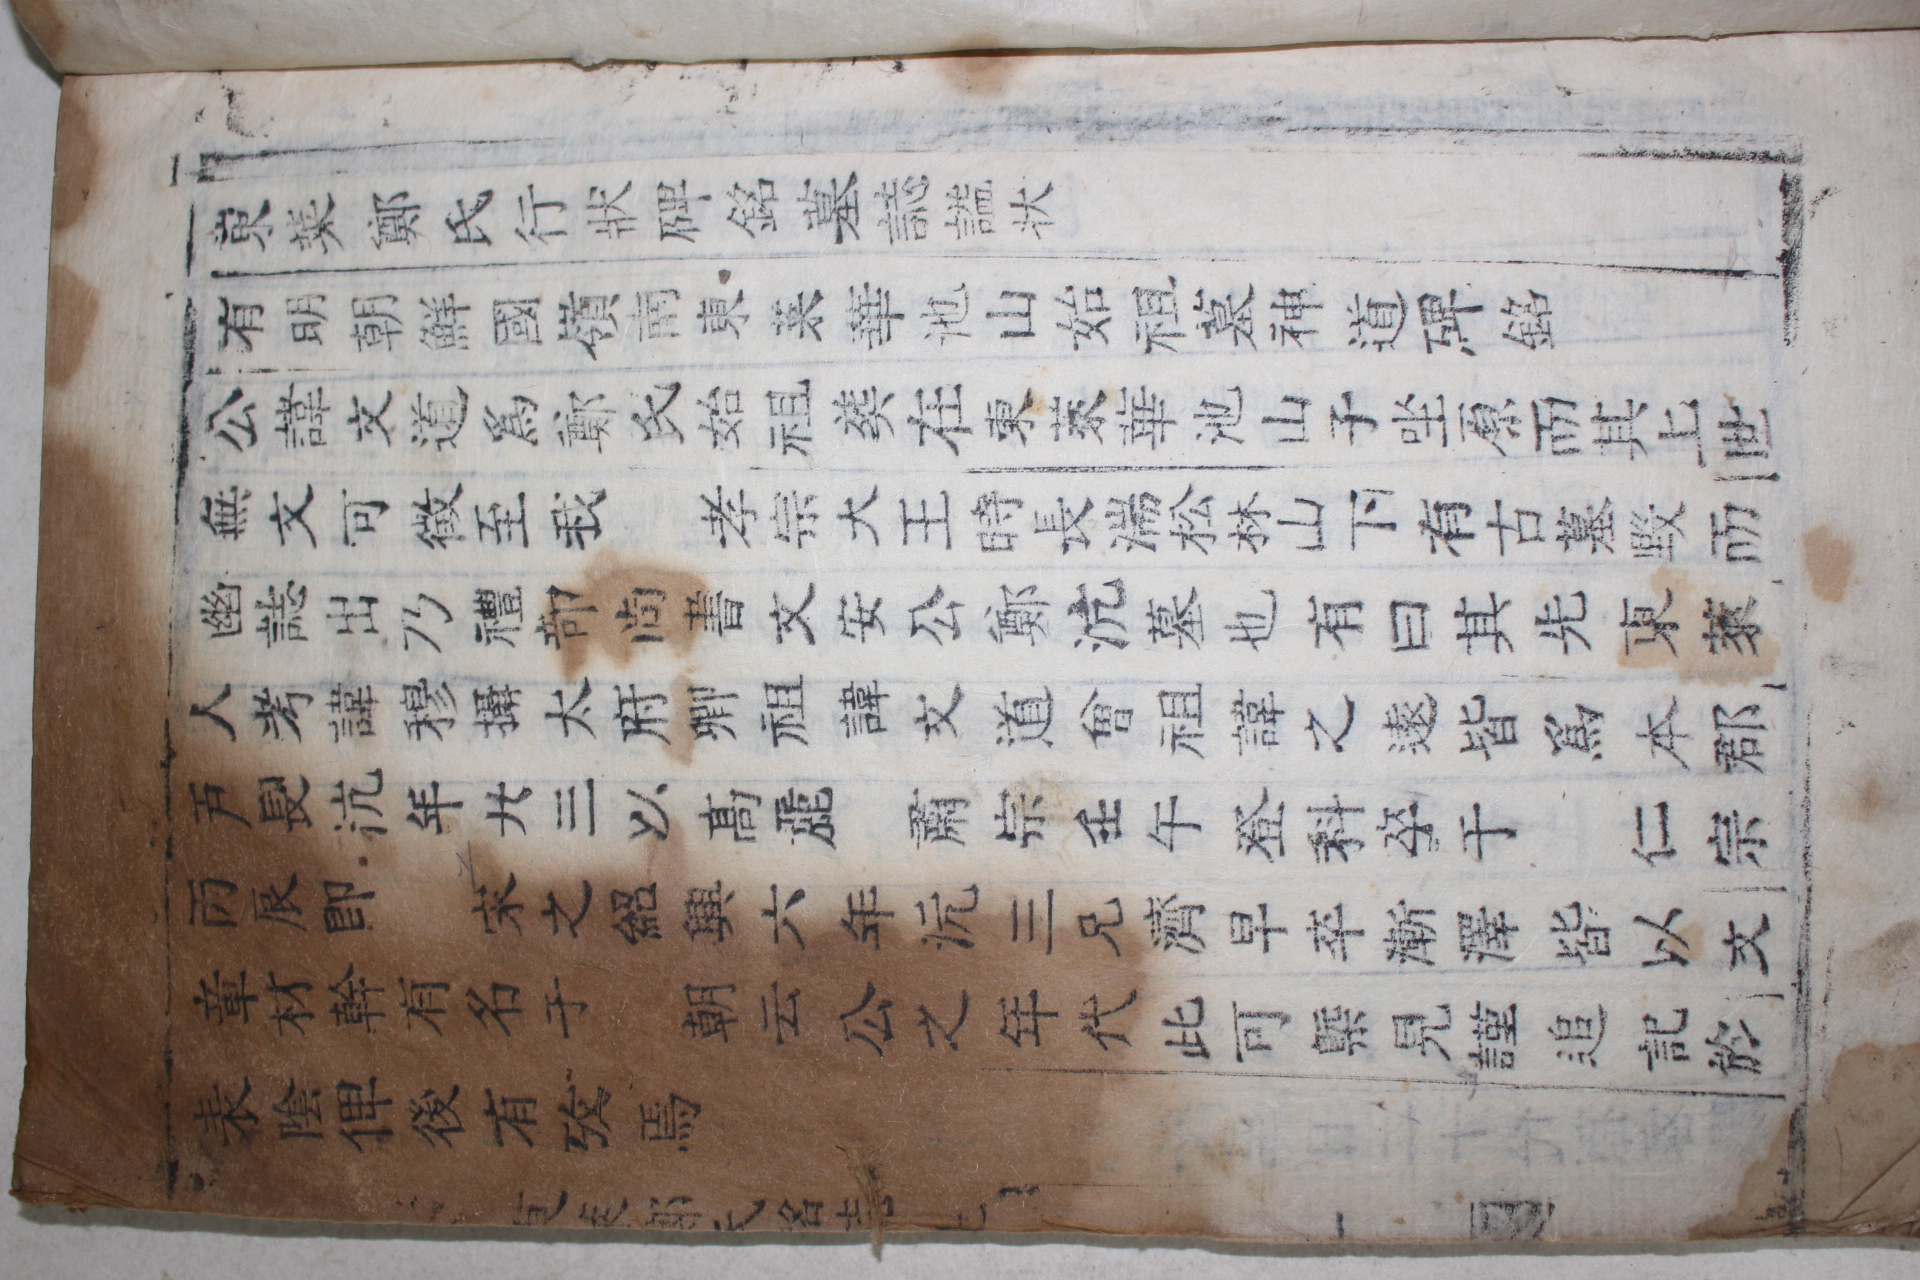 東萊鄭氏行狀碑銘墓誌謚狀
有明朝鮮國嶺南東萊華池山始祖墓神道碑銘
公諱文道爲鄭氏始祖葬在東萊華池山子坐原而其上世
無文可徵至我　孝宗大王時長湍松林山下有古墓毁而
幽誌出乃禮部尚書文安公鄭沆墓也有曰其先東萊
人考諱穆攝太府卿祖諱文道曾祖諱之遠皆爲本郡
戶長沆年廿三以高麗　肅宗壬午登科卒于　仁宗
丙辰即　宋之紹興六年沆三兄濟早卒漸澤皆以文
章材幹有名于　朝云公之年代此可槩見謹追記於
表陰俾後有攷焉
東萊鄭氏銘誌　上